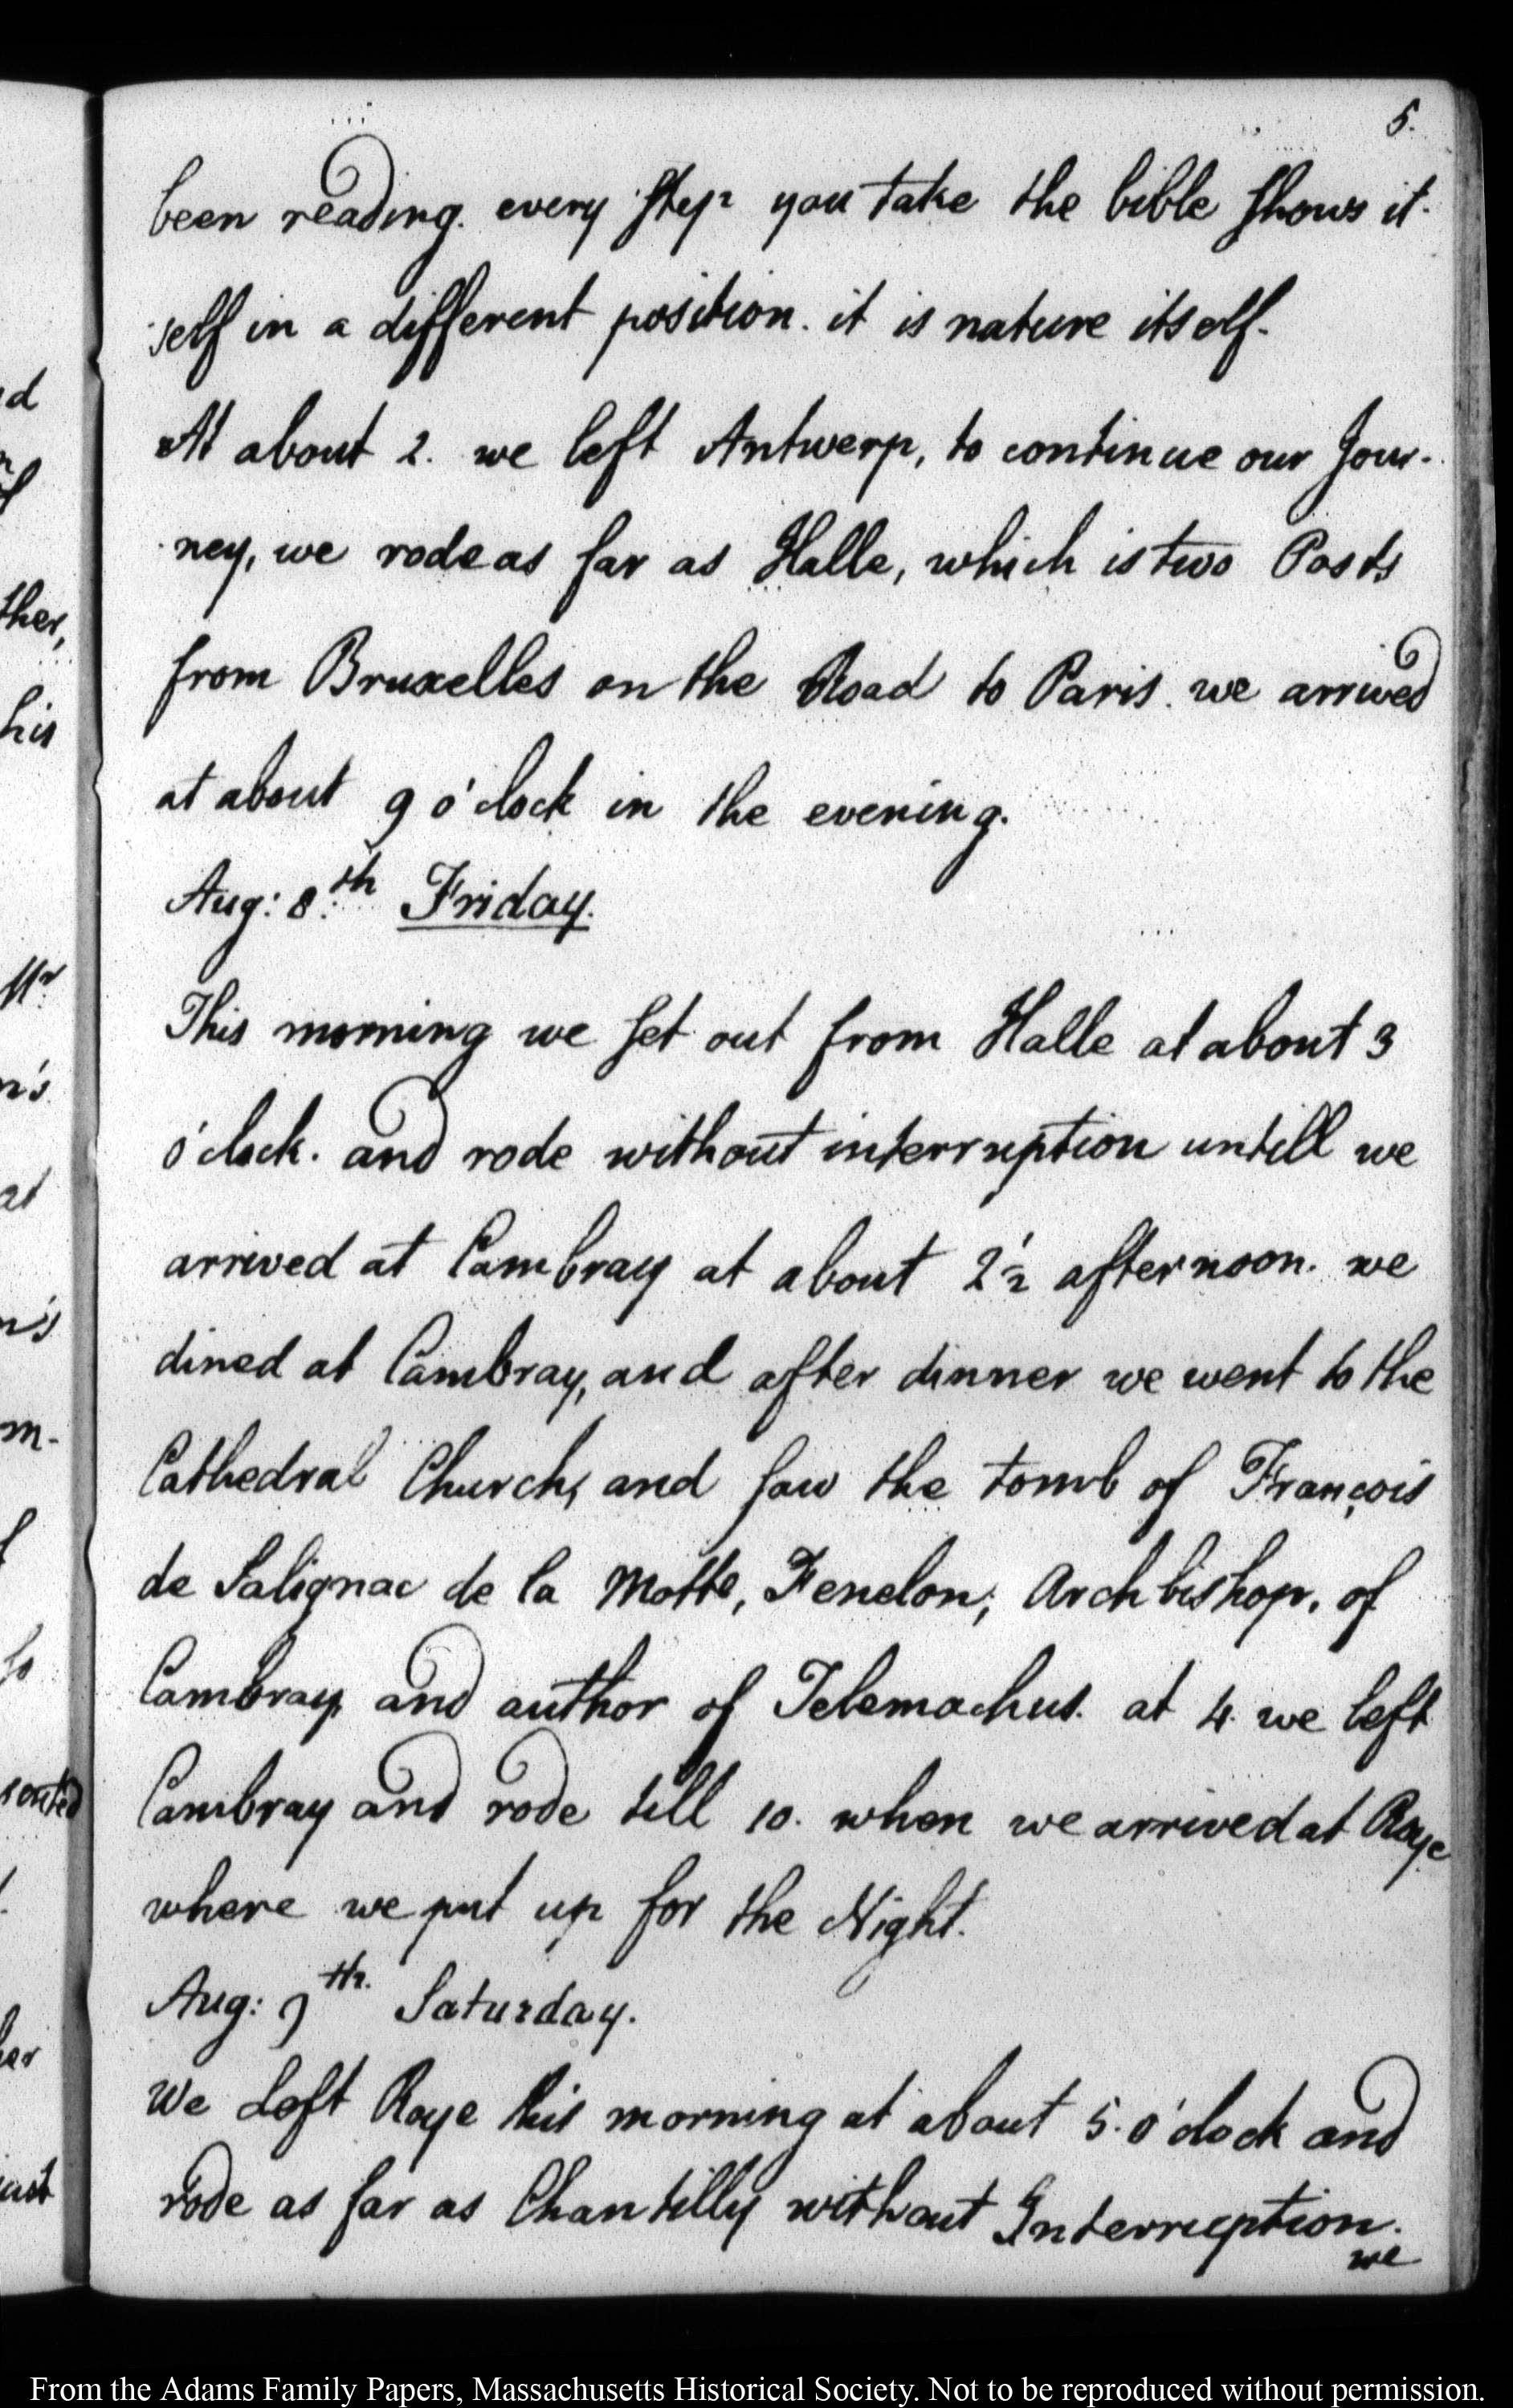 5.
been reading. every step you take the bible shows it-
self in a different position. it is nature itself.
At about 2. we left Antwerp, to continue our Jour-
ney, we rode as far as Halle, which is two Posts
from Bruxelles on the Road to Paris. we arrived
at about 9 o'clock in the evening.
Aug: 8.th Friday.
This morning we set out from Halle at about 3
o'clock. and rode without interruption untill we
arrived at Cambray at about 2 1/2 afternoon. we
dined at Cambray, and after dinner we went to the
Cathedral Church, and saw the tomb of François
de Salignac de la Motte, Fenelon, Archbishop. of
Cambray, and author of Telemachus. at 4. we left
Cambray and rode till 10. when we arrived at Roye
where we put up for the Night.
Aug: 9th. Saturday.
We Left Roye this morning at about 5. o'clock and
rode as far as Chantilly without Interruption.
we
d
ther,
his
Mr
n's
at
n's
m-
so
her
From the Adams Family Papers, Massachusetts Historical Society. Not to be reproduced without permission.